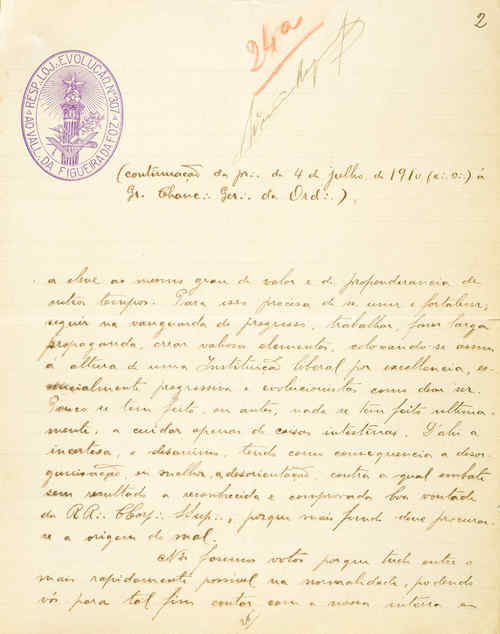 2
24a
RESP. LOJ. EVOLUÇÃO Nº 307
AO VALL. DA FIGUEIRA DA FOZ
(continuação da pr∴ de 4 de julho de 1910 (e∴ v∴) á
Gr. Chanc∴ Ger∴ da Ord∴).
a eleve ao mesmo grau de valor e de preponderancia de
outros tempos. Para isso precisa de se unir e fortalecer,
seguir na vanguarda do progresso, trabalhar, fazer larga
propaganda, crear valiosos elementos, collocando-se assim
á altura d'uma Instituição liberal por excellencia, es-
sencialmente progressiva e evolucionista como deve ser.
Pouco se tem feito, ou antes, nada se tem feito ultima-
mente, a cuidar apenas de cousas intestinas. D'ahi a
incertesa, o desanimo, tendo como consequencia a desor-
ganisação, ou melhor, a desorientação, contra a qual embate
sem resultado a reconhecida e comprovada boa vontade
da RR∴ CCorp∴ Sup∴, porque mais fundo deve procurar-
se a origem do mal.
Nós fazemos votos porque tudo entre o
mais rapidamente possivel na normalidade, podendo
vós para tal fim contar com a nossa inteira